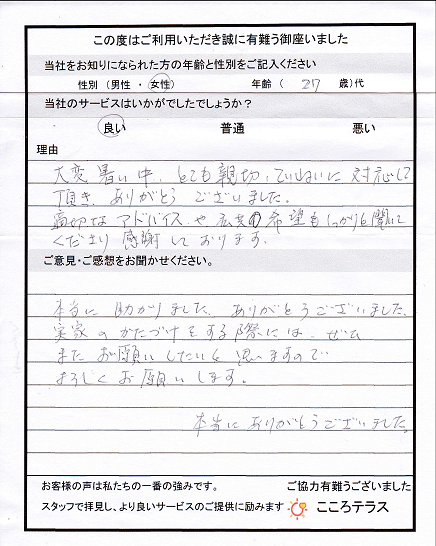 この度はご利用いただき誠に有難う御座いました
当社をお知りになられた方の年齢と性別をご記入ください
性別(男性・女性) 年齢( 27 歳)代
当社のサービスはいかがでしたでしょうか?
良い 普通 悪い
理由
大変暑い中、とても親切、ていねいに対応して
頂き、ありがとうございました。
適切なアドバイスや 希望もしっかりと聞いて
くださり感謝しております。
ご意見・ご感想をお聞かせください。
本当に助かりました。ありがとうございました。
実家のかたづけをする際には、ぜひ
またお願いしたいと思いますので
よろしくお願いします。
本当にありがとうございました。
お客様の声は私たちの一番の強みです。 ご協力有難うございました
スタッフで拝見し、より良いサービスのご提供に励みます こころテラス